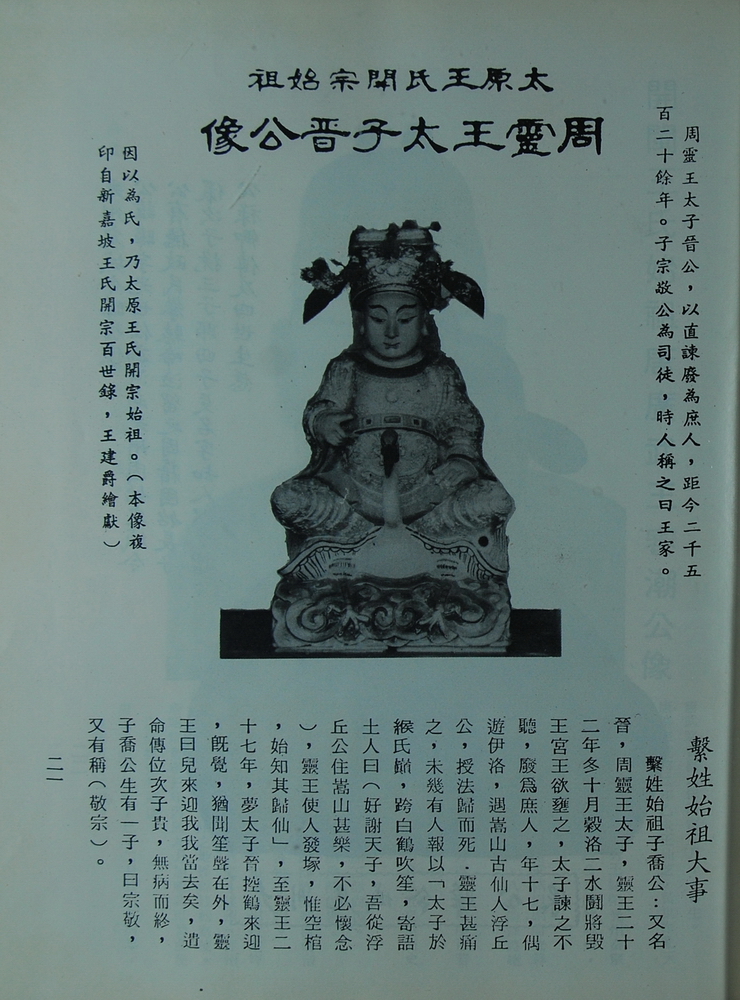 太原王氏開宗始祖
周靈王太子晋公像
周靈王太子晉公，以直諫廢為庶人，距今二千五
百二十餘年。子宗敬公為司徒，時人稱之曰王家。
因以為氏，乃太原王氏開宗始祖。（本像複
印自新嘉坡王氏開宗百世錄，王建爵繪獻）
繫姓始祖大事
繫姓始祖子喬公：又名
晉，周靈王太子，靈王二十
二年冬十月穀洛二水鬪將毀
王宮王欲壅之，太子諫之不
聽，廢爲庶人，年十七，偶
遊伊洛，遇嵩山古仙人浮丘
公，授法歸而死．靈王甚痛
之，未幾有人報以「太子於
緱氏巔，跨白鶴吹笙，寄語
土人曰（好謝天子，吾從浮
丘公住嵩山甚樂，不必懷念
），靈王使人發塚，惟空棺
，始知其歸仙」，至靈王二
十七年，夢太子晉控鶴來迎
，旣覺，猶聞笙聲在外，靈
王曰兒來迎我我當去矣，遺
命傳位次子貴，無病而終，
子喬公生有一子，曰宗敬，
又有稱（敬宗）。
二一